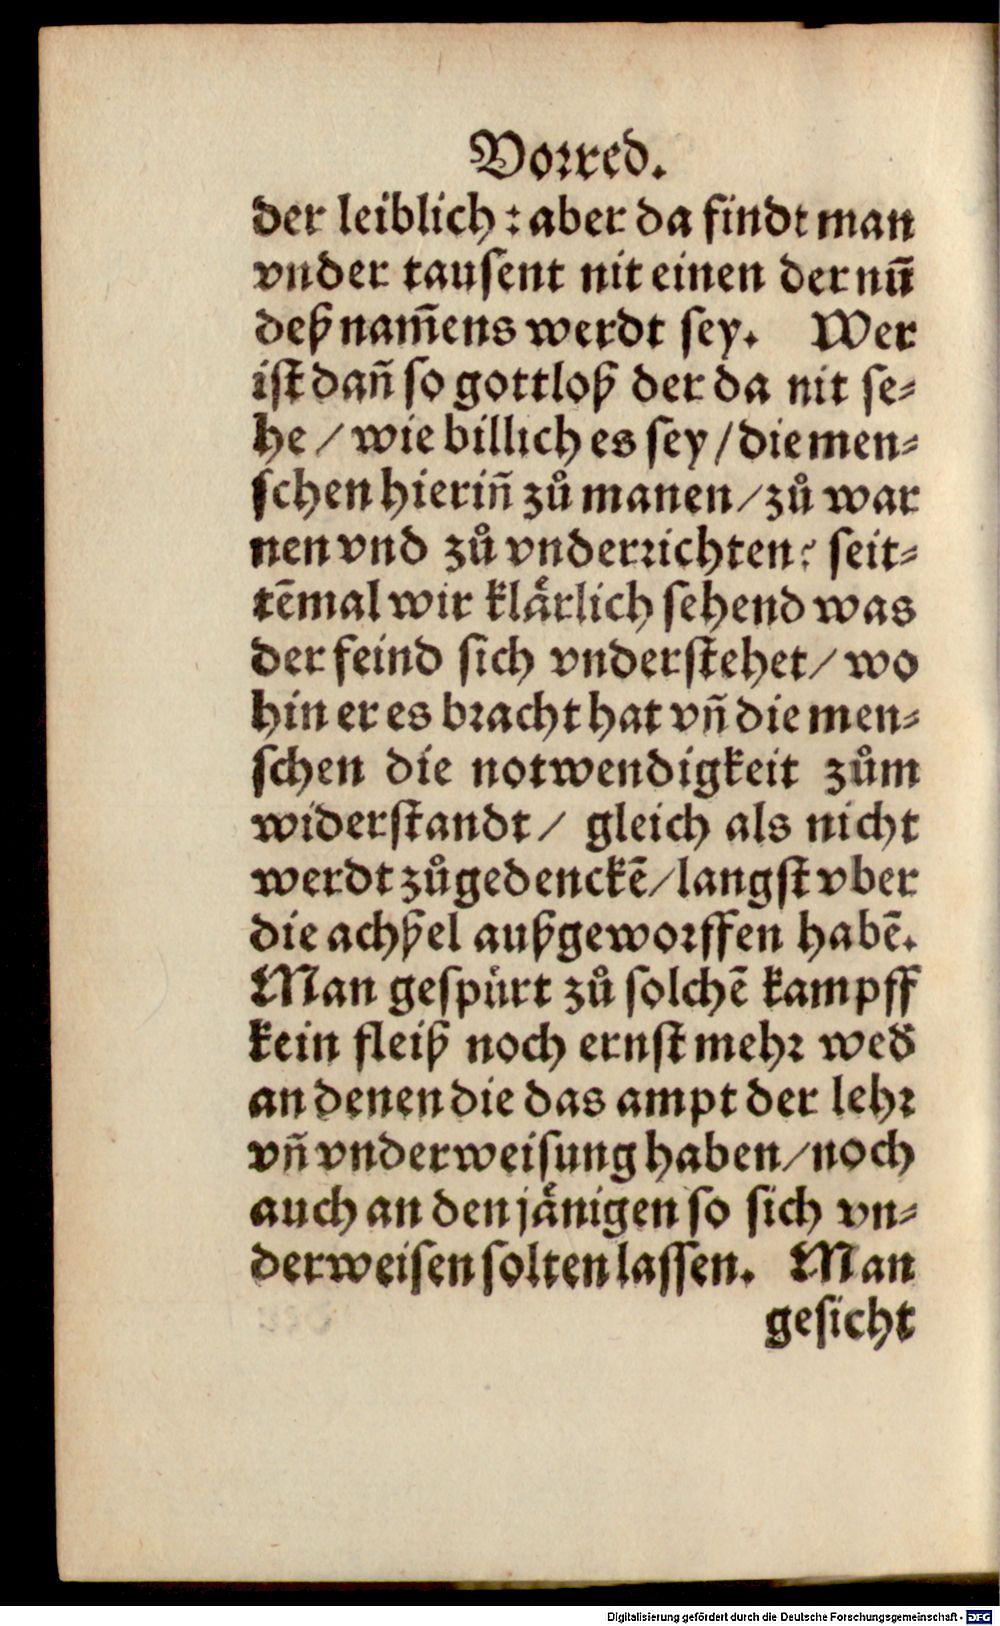 Vorred.
der leiblich : aber da findt man
vnder tausent nit einen der nuñ
deß nam̃ens werdt sey. Wer
ist dañ so gottloß der da nit se⸗
he / wie billich es sey / die men⸗
schen hieriñ zů manen / zů war
nen vnd zů vnderrichten: seit⸗
tēmal wir klaͤrlich sehend was
der feind sich vnderstehet / wo
hin er es bracht hat vñ die men⸗
schen die notwendigkeit zům
widerstandt / gleich als nicht
werdt zůgedenckē / langst vber
die achßel außgeworffen habē.
Man gespürt zů solchē kampff
kein fleiß noch ernst mehr wed̕
an denen die das ampt der lehr
vñ vnderweisung haben / noch
auch an den jaͤnigen so sich vn⸗
derweisen solten lassen. Man
gesicht
Digitalisierung gefördert durch die Deutsche Forschungsgemeinschaft - DFG